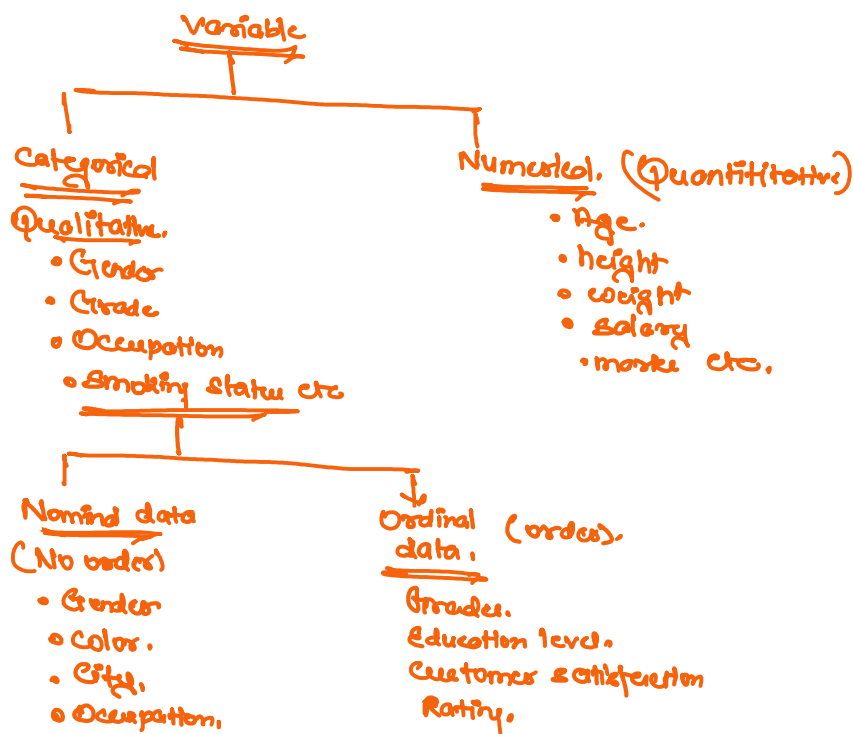 Variable
Categorical
Qualitative.
• Gender
• Grade
• Occupation
• Smoking status etc
Numerical. (Quantititative)
• Age.
• height
• weight
• salary
• marks etc.
Nominal data
(No order)
• Gender
• Color.
• City.
• Occupation.
Ordinal (order).
data.
Grades.
Education level.
Customer satisfaction
Rating.